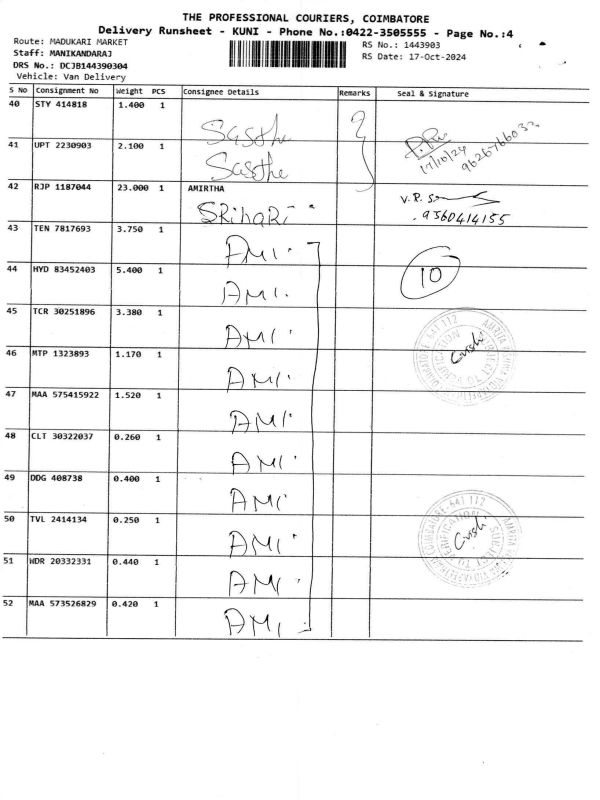 THE PROFESSIONAL COURIERS, COIMBATORE
Delivery Runsheet - KUNI - Phone No.:0422-3505555 - Page No.:4
Route: MADUKARI MARKET
RS No.: 1443903
Staff: MANIKANDARAJ
RS Date: 17-Oct-2024
DRS No.: DCJB144390304
Vehicle: Van Delivery
S No Consignment No Weight PCS Consignee Details Remarks Seal & Signature
40 STY 414818 1.400 1
Sasthe
17/10/24
41 UPT 2230903 2.100 1
Sasthe
42 RJP 1187044 23.000 1 AMIRTHA
SRIHARI
V.R.
9360414155
43 TEN 7817693 3.750 1
AMI
44 HYD 83452403 5.400 1
AMI
10
45 TCR 30251896 3.380 1
AMI
46 MTP 1323893 1.170 1
AMI
47 MAA 575415922 1.520 1
AMI
48 CLT 30322037 0.260 1
AMI
49 DDG 408738 0.400 1
AMI
50 TVL 2414134 0.250 1
AMI
51 WDR 20332331 0.440 1
AMI
52 MAA 573526829 0.420 1
AMI